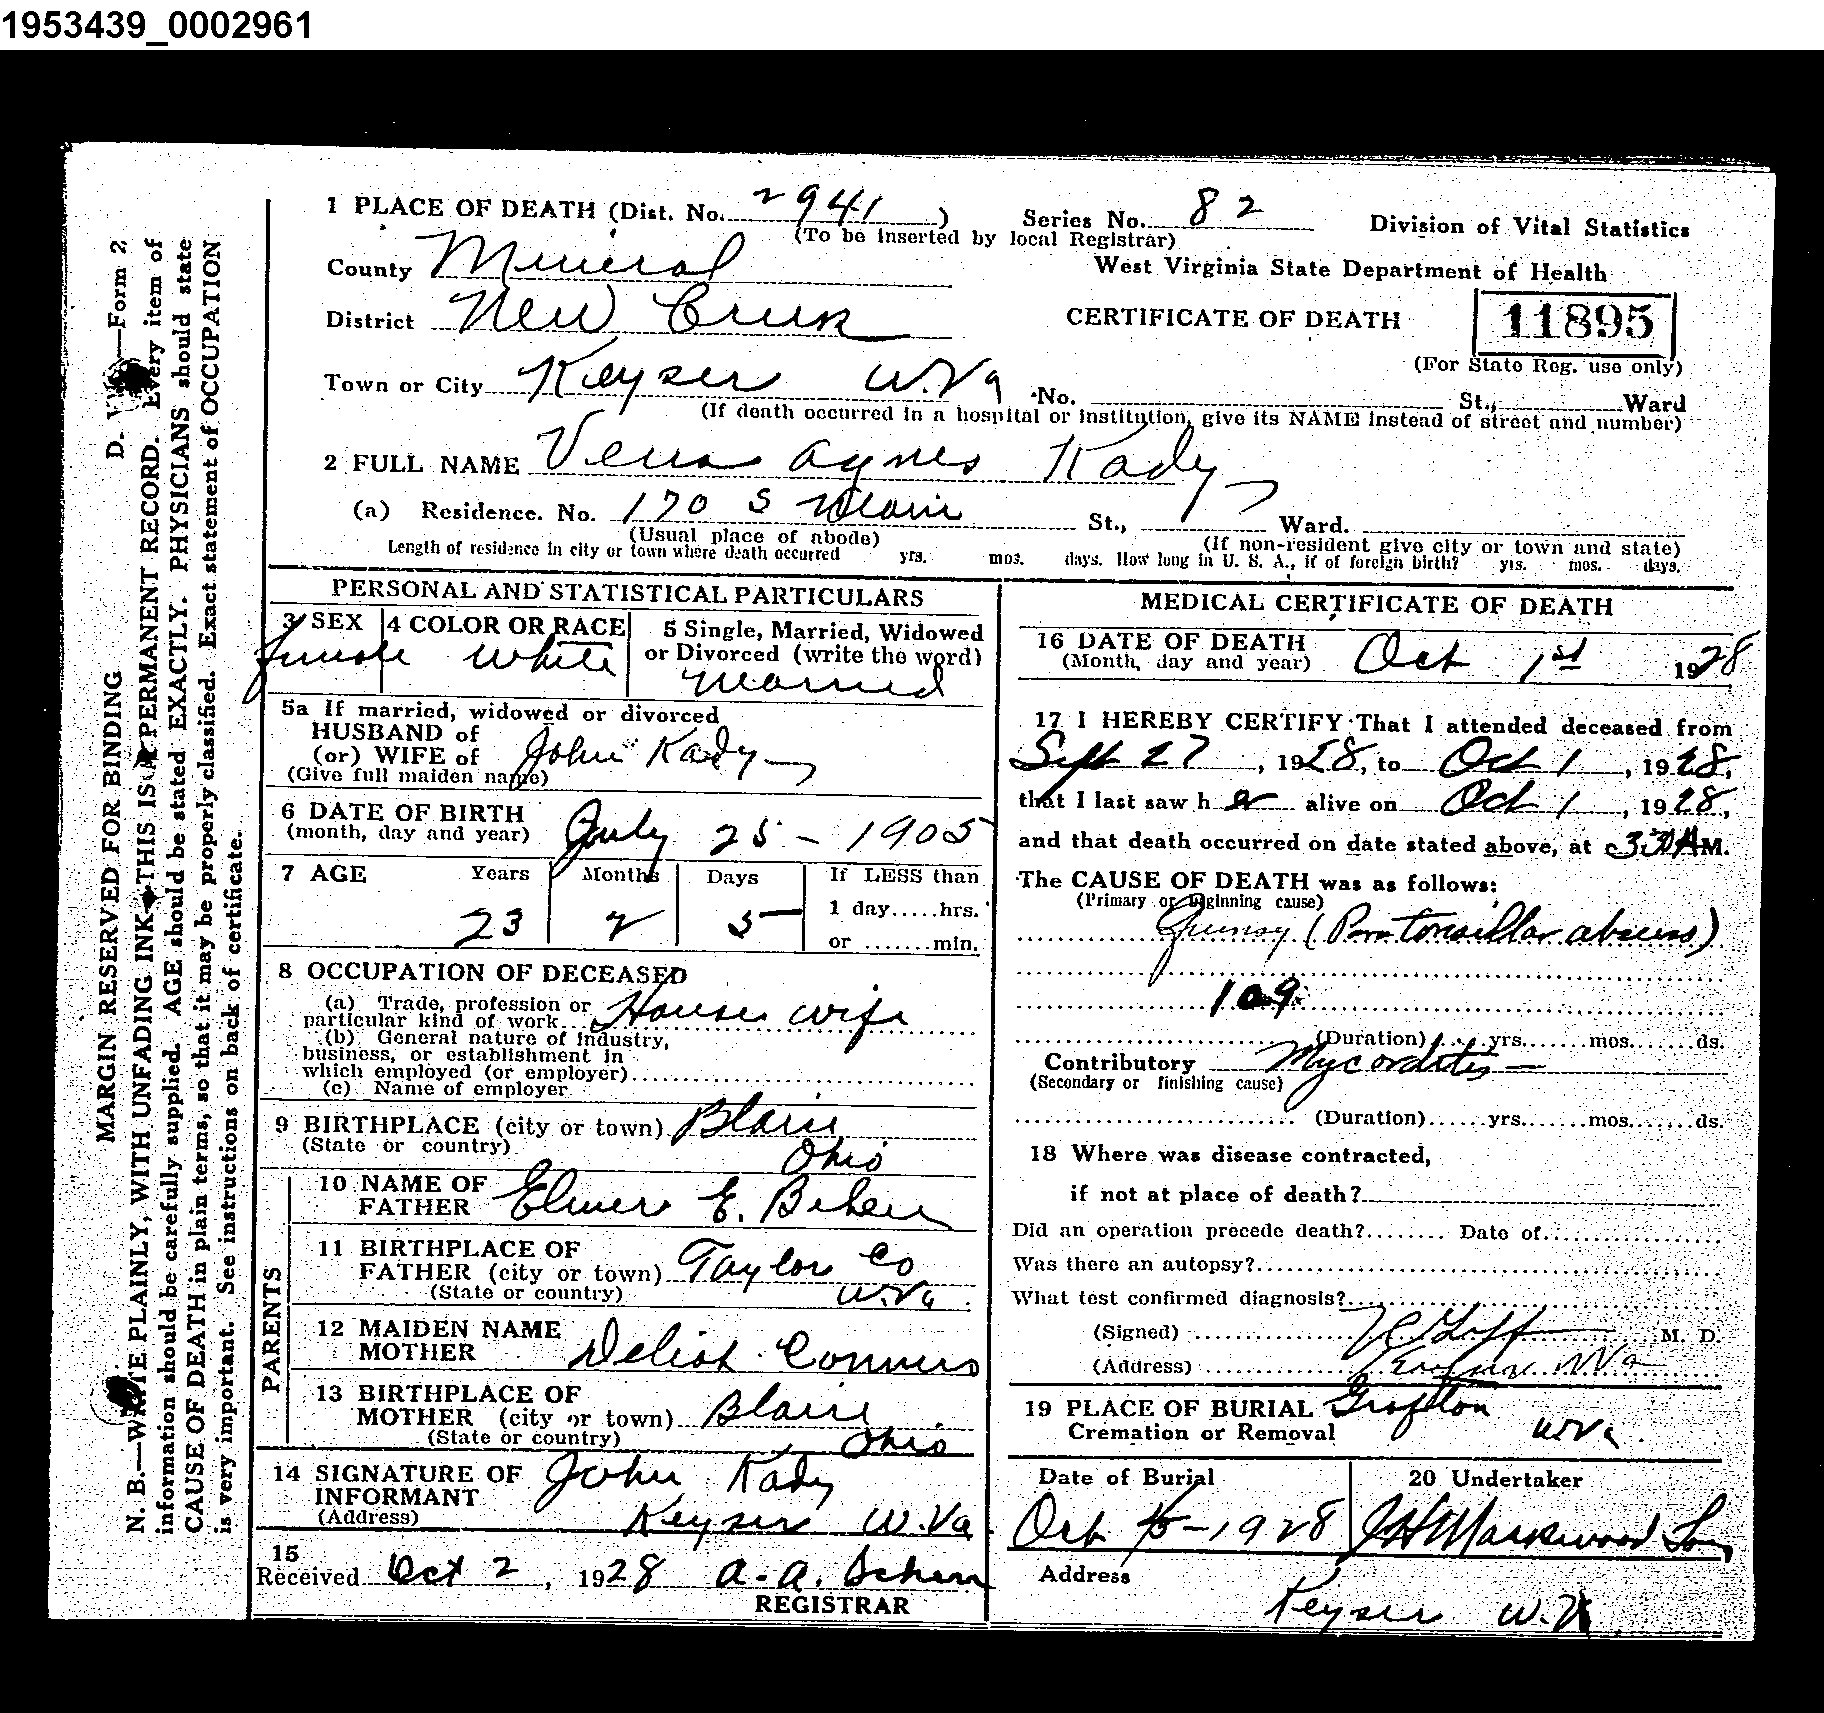 1953439_0002961
1 PLACE OF DEATH (Dist. No. 2941 ) Series No. 82 Division of Vital Statistics
(To be inserted by local Registrar)
County Mineral West Virginia State Department of Health
District New Creek CERTIFICATE OF DEATH 11895
(For State Reg. use only)
Town or City Keyser W.Va No. St., Ward
(If death occurred in a hospital or institution, give its NAME instead of street and number)
2 FULL NAME Agnes Kady
(a) Residence. No. 170 S St., Ward.
(Usual place of abode) (If non-resident give city or town and state)
Length of residence in city or town where death occurred yrs. mos. days. How long in U. S. A., if of foreign birth? yrs. mos. days.
PERSONAL AND STATISTICAL PARTICULARS
3 SEX 4 COLOR OR RACE 5 Single, Married, Widowed
or Divorced (write the word)
female White Married
5a If married, widowed or divorced
HUSBAND of
(or) WIFE of John Kady
(Give full maiden name)
6 DATE OF BIRTH
(month, day and year) July 25 - 1905
7 AGE Years Months Days If LESS than
1 day.....hrs.
23 2 5
or .......min.
8 OCCUPATION OF DECEASED
(a) Trade, profession or
particular kind of work House wife
(b) General nature of industry,
business, or establishment in
which employed (or employer)
(c) Name of employer
9 BIRTHPLACE (city or town) Blaire
(State or country) Ohio
PARENTS
10 NAME OF
FATHER Elmer E.
11 BIRTHPLACE OF
FATHER (city or town) Taylor Co
(State or country) W.Va
12 MAIDEN NAME
MOTHER Deliah
13 BIRTHPLACE OF
MOTHER (city or town) Blaire
(State or country) Ohio
14 SIGNATURE OF
INFORMANT John Kady
(Address) Keyser W.Va
15
Received Oct 2, 1928 A. A.
REGISTRAR
MEDICAL CERTIFICATE OF DEATH
16 DATE OF DEATH
(Month, day and year) Oct 1st 1928
17 I HEREBY CERTIFY That I attended deceased from
Sept 27, 1928, to Oct 1, 1928,
that I last saw h er alive on Oct 1, 1928,
and that death occurred on date stated above, at 3:30 A M.
The CAUSE OF DEATH was as follows:
(Primary or Beginning cause)
Quinsy (Peritonsillar abscess)
109
(Duration) yrs. mos. ds.
Contributory Mycorditis
(Secondary or finishing cause)
(Duration) yrs. mos. ds.
18 Where was disease contracted,
if not at place of death?
Did an operation precede death? Date of
Was there an autopsy?
What test confirmed diagnosis?
(Signed) M. D.
(Address) W Va
19 PLACE OF BURIAL Grafton
Cremation or Removal W Va.
Date of Burial 20 Undertaker
Oct -1928 J H Markwood
Address
Keyser W.V
D. —Form 2
MARGIN RESERVED FOR BINDING
N. B.—WRITE PLAINLY, WITH UNFADING INK—THIS IS A PERMANENT RECORD. Every item of
information should be carefully supplied. AGE should be stated EXACTLY. PHYSICIANS should state
CAUSE OF DEATH in plain terms, so that it may be properly classified. Exact statement of OCCUPATION
is very important. See instructions on back of certificate.